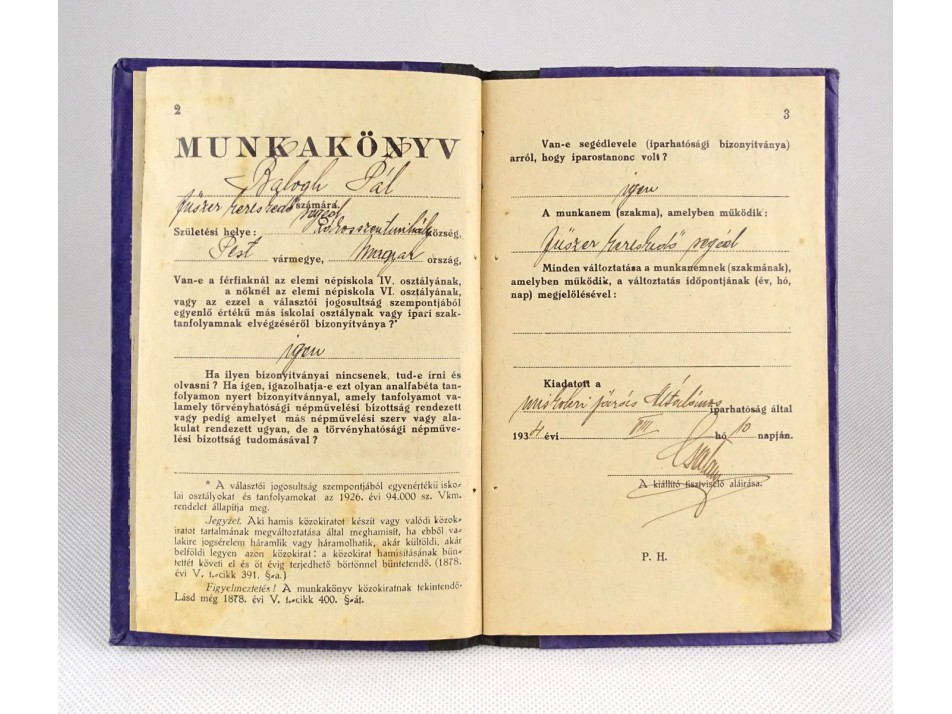 2
MUNKAKÖNYV
Balogh Pál
fűszer kereskedő segéd számára.
Születési helye: Rákosszentmihály község,
Pest vármegye, Magyar ország,
Van-e a férfiaknál az elemi népiskola IV. osztályának,
a nőknél az elemi népiskola VI. osztályának,
vagy az ezzel a választói jogosultság szempontjából
egyenlő értékű más iskolai osztálynak vagy ipari szak-
tanfolyamnak elvégzéséről bizonyítványa?*
igen
Ha ilyen bizonyítványai nincsenek, tud-e írni és
olvasni? Ha igen, igazolhatja-e ezt olyan analfabéta tan-
folyamon nyert bizonyítvánnyal, amely tanfolyamot va-
lamely törvényhatósági népművelési bizottság rendezett
vagy pedig amelyet más népművelési szerv vagy ala-
kulat rendezett ugyan, de a törvényhatósági népműve-
lési bizottság tudomásával?
* A választói jogosultság szempontjából egyenértékű isko-
lai osztályokat és tanfolyamokat az 1926. évi 94.000 sz. Vkm.
rendelet állapítja meg.
Jegyzet. Aki hamis közokiratot készít vagy valódi közok-
iratot tartalmának megváltoztatása által meghamisít, ha ebből va-
lakire jogsérelem háramlik vagy háramolhatik, akár külföldi, akár
belföldi legyen azon közokirat: a közokirat hamisításának bün-
tettét követi el és öt évig terjedhető börtönnel büntetendő. (1878.
évi V. t.-cikk 391. §-a.)
Figyelmeztetés! A munkakönyv közokiratnak tekintendő-
Lásd még 1878. évi V. t.-cikk 400. §-át.
3
Van-e segédlevele (iparhatósági bizonyítványa)
arról, hogy iparostanonc volt?
igen
A munkanem (szakma), amelyben működik:
fűszer kereskedő segéd
Minden változtatása a munkanemnek (szakmának),
amelyben működik, a változtatás időpontjának (év, hó,
nap) megjelölésével:
Kiadatott a
miskolci járás Általános iparhatóság által
1934 évi VIII hó 10 napján.
A kiállító tisztviselő aláírása.
P. H.